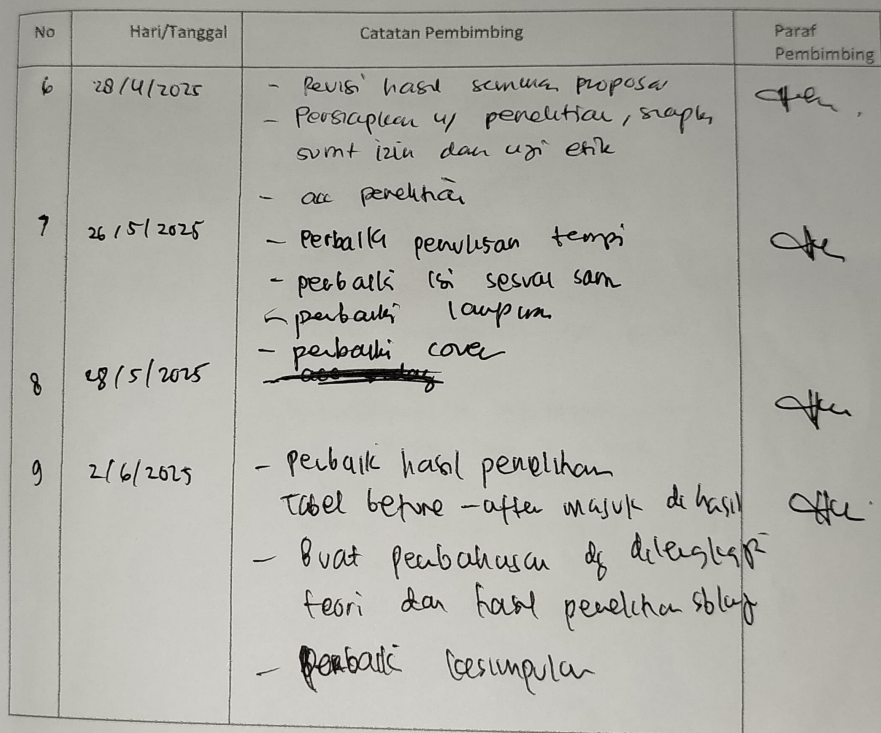 No Hari/Tanggal Catatan Pembimbing Paraf Pembimbing
6 28/4/2025 - Revisi hasil seminar proposal
- Persiapkan u/ penelitian, siapkn
surat izin dan uji etik
- acc penelitian
7 26/5/2025 - Perbaiki penulisan
- perbaiki isi sesuai
- perbaiki lampiran
- perbaiki cover
8 28/5/2025
9 2/6/2025 - Perbaik hasil penelitian
Tabel before - after masuk di hasil
- Buat pembahasan dg dilengkapi
teori dan hasil penelitian sblmy
- Perbaiki kesimpulan